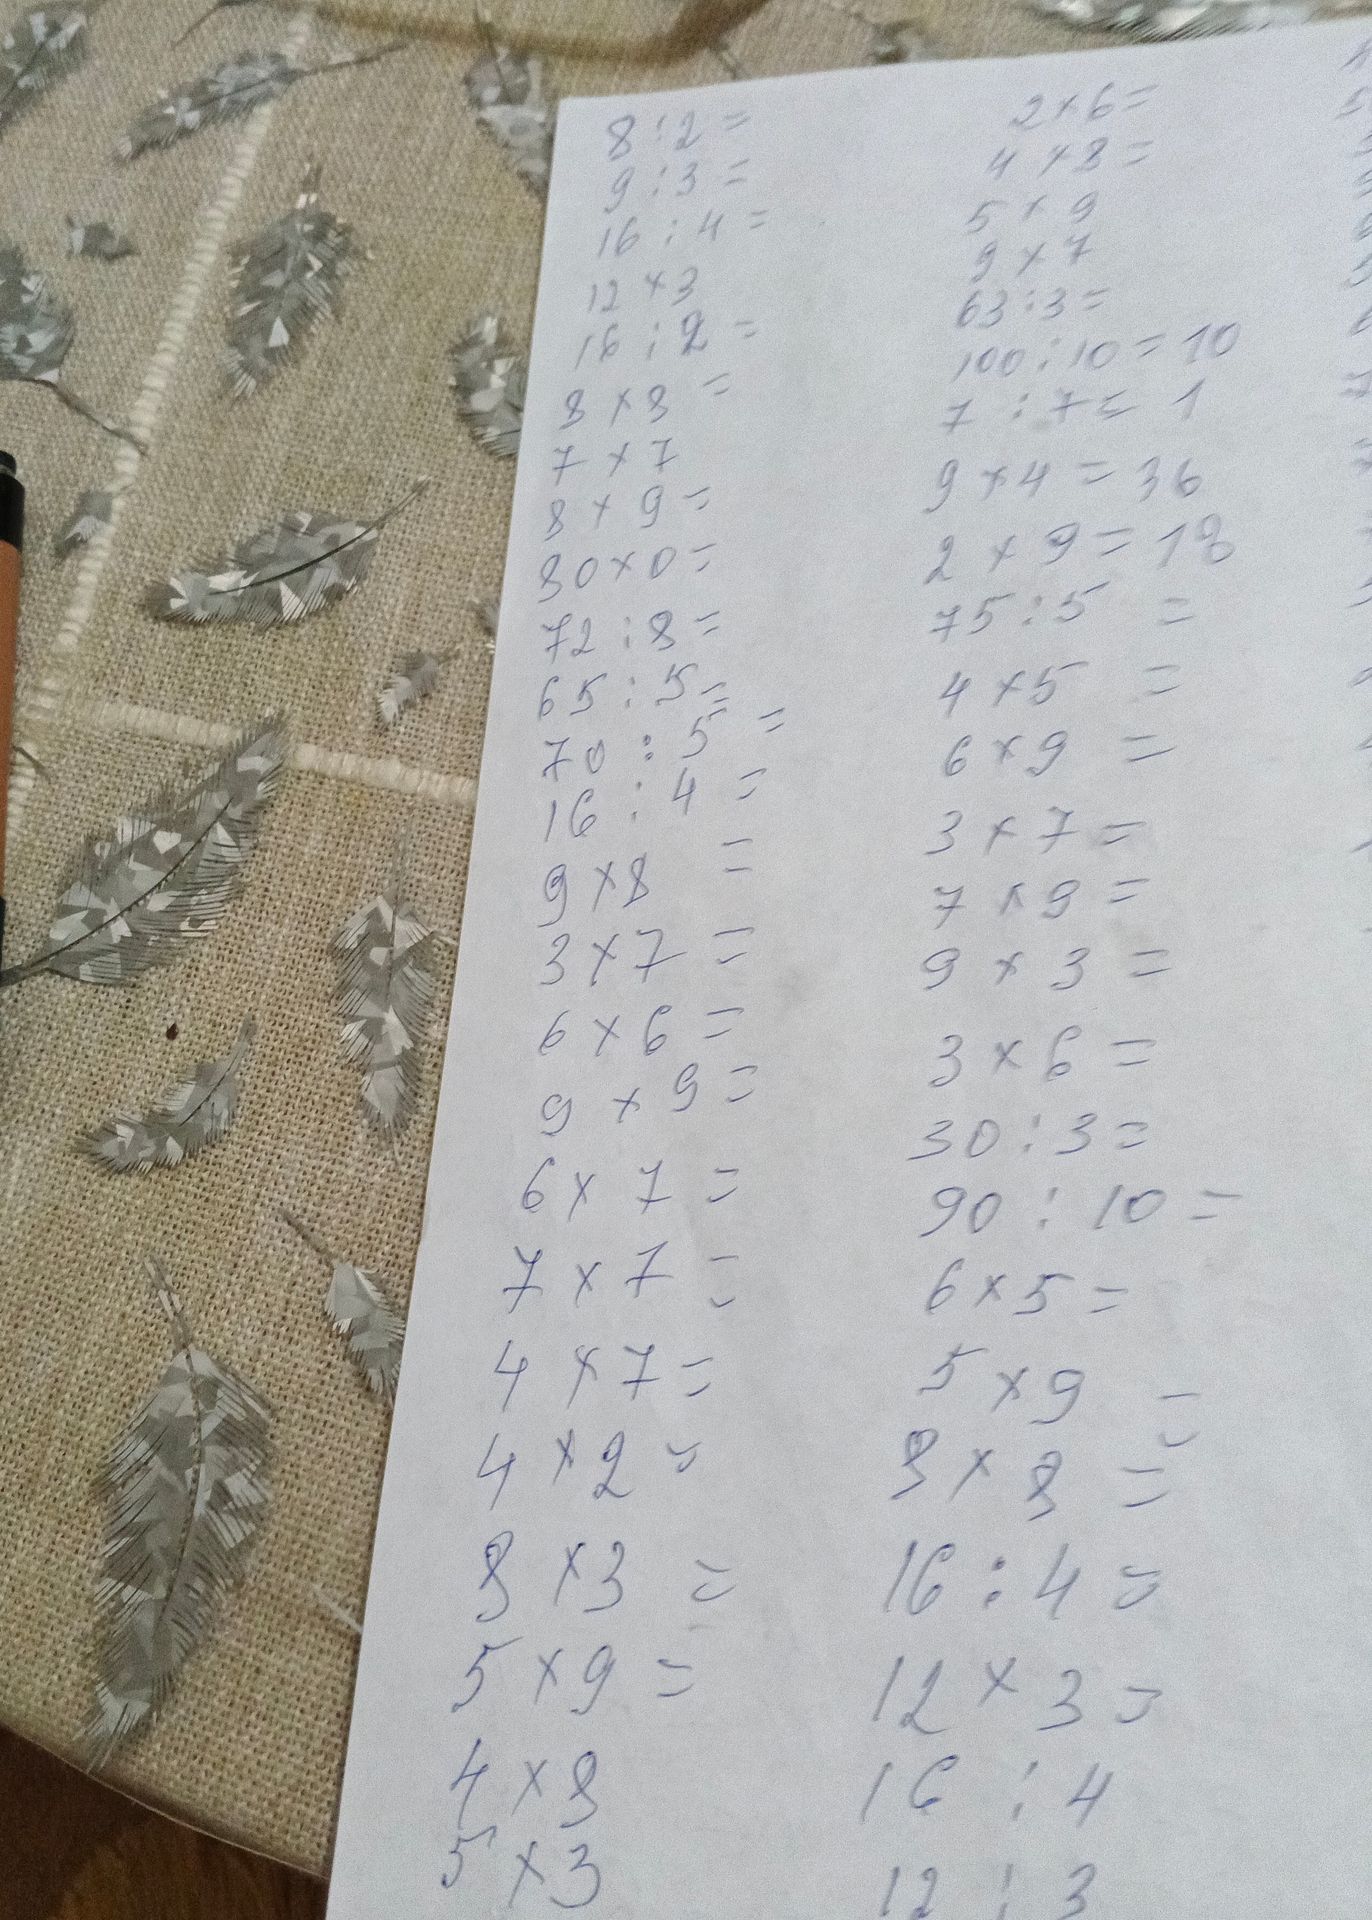 8 : 2 =
9 : 3 =
16 : 4 =
12 × 3
16 : 2 =
8 × 8 =
7 × 7
8 × 9 =
80 × 0 =
72 : 8 =
65 : 5 =
70 : 5 =
16 : 4 =
9 × 8 =
3 × 7 =
6 × 6 =
9 × 9 =
6 × 7 =
7 × 7 =
4 × 7 =
4 × 2 =
8 × 3 =
5 × 9 =
4 × 8
5 × 3
2 × 6 =
4 × 8 =
5 × 9
9 × 7
63 : 3 =
100 : 10 = 10
7 : 7 = 1
9 × 4 = 36
2 × 9 = 18
75 : 5 =
4 × 5 =
6 × 9 =
3 × 7 =
7 × 9 =
9 × 3 =
3 × 6 =
30 : 3 =
90 : 10 =
6 × 5 =
5 × 9 =
8 × 8 =
16 : 4 =
12 × 3 =
16 : 4
12 : 3